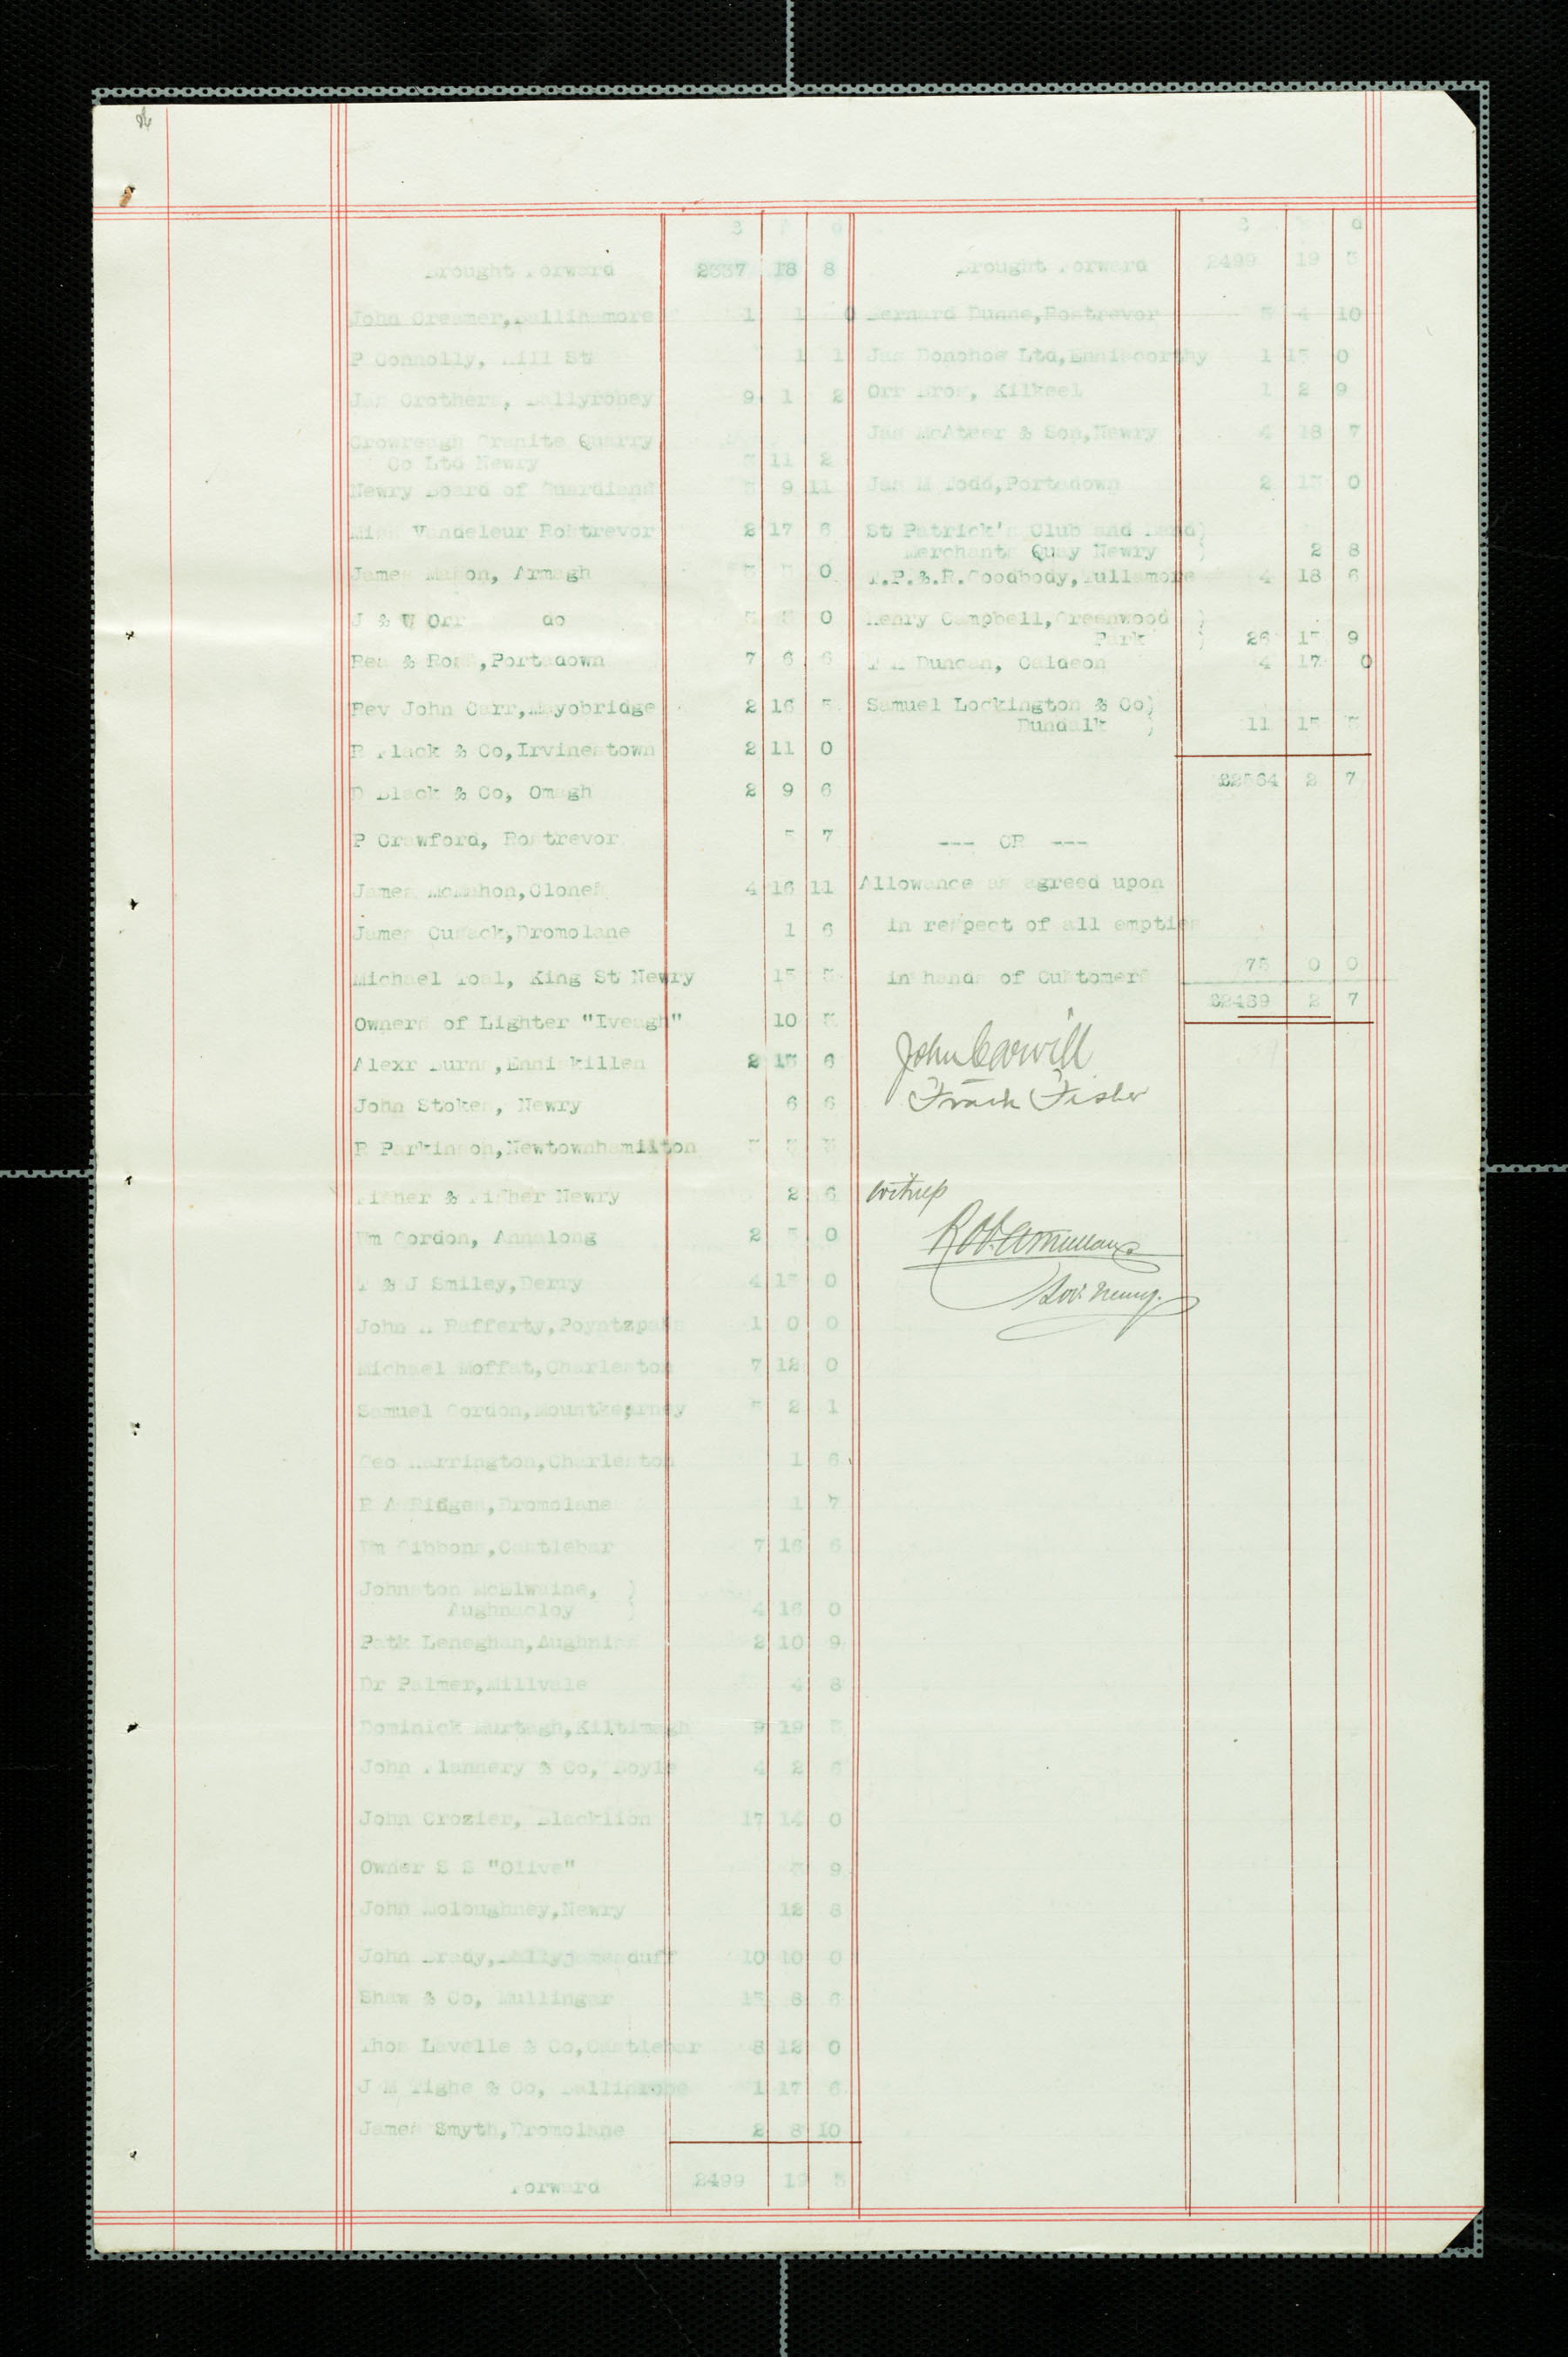 £ s d
Brought Forward 2337 18 8
John Creamer, Ballinamore 1 1 0
P Connolly, Hill St 1 1
Jas Crothers, Ballyroney 9 1 2
Crowreagh Granite Quarry
Co Ltd Newry 11 2
Newry Board of Guardians 9 11
Miss Vandeleur Rostrevor 2 17 6
James Mahon, Armagh 0
J & W Orr do 0
Rea & Ross, Portadown 7 6 6
Rev John Carr, Mayobridge 2 16
R Black & Co, Irvinestown 2 11 0
D Black & Co, Omagh 2 9 6
P Crawford, Rostrevor 5 7
James McMahon, Clones 4 16 11
James Cusack, Dromolane 1 6
Michael Toal, King St Newry 15
Owners of Lighter "Iveagh" 10
Alexr Burns, Enniskillen 2 15 6
John Stokes, Newry 6 6
R Parkinson, Newtownhamilton
Fisher & Fisher Newry 2 6
Wm Gordon, Annalong 2 5 0
T & J Smiley, Derry 4 15 0
John Rafferty, Poyntzpass 1 0 0
Michael Moffat, Charleston 7 12 0
Samuel Gordon, Mountkearney 5 2 1
Geo Harrington, Charleston 1 6
R A Ridges, Dromolane 1 7
Wm Gibbons, Castlebar 7 16 6
Johnston McElwaine, )
Aughnacloy ) 4 16 0
Patk Leneghan, Aughnish 2 10 9
Dr Palmer, Millvale 4 8
Dominick Murtagh, Kiltimagh 9 19
John Flannery & Co, Boyle 4 2 6
John Crozier, Blacklion 17 14 0
Owner S S "Olive" 9
John Moloughney, Newry 12 8
John Brady, Ballyjamesduff 10 10 0
Shaw & Co, Mullingar 15 8 6
Thos Lavelle & Co, Castlebar 8 12 0
J M Tighe & Co, Ballinrobe 1 17 6
James Smyth, Dromolane 2 8 10
Forward 2499 19 5
£ d
Brought Forward 2499 19 5
Bernard Dunne, Rostrevor 5 4 10
Jas Donohoe Ltd, Enniscorthy 1 15 0
Orr Bros, Kilkeel 1 2 9
Jas McAteer & Son, Newry 4 18 7
Jas M Todd, Portadown 2 15 0
St Patrick's Club and Band)
Merchants Quay Newry ) 2 8
T.P.&.R.Goodbody, Tullamore 4 18 6
Henry Campbell, Greenwood )
Park ) 26 15 9
Duncan, Caldeon 4 17 0
Samuel Lockington & Co)
Dundalk ) 11 15
£2564 2 7
--- CR ---
Allowance as agreed upon
in respect of all empties
in hands of Customers 75 0 0
£2489 2 7
John Carvill
Frank Fisher
Witness
Solr. Newry.